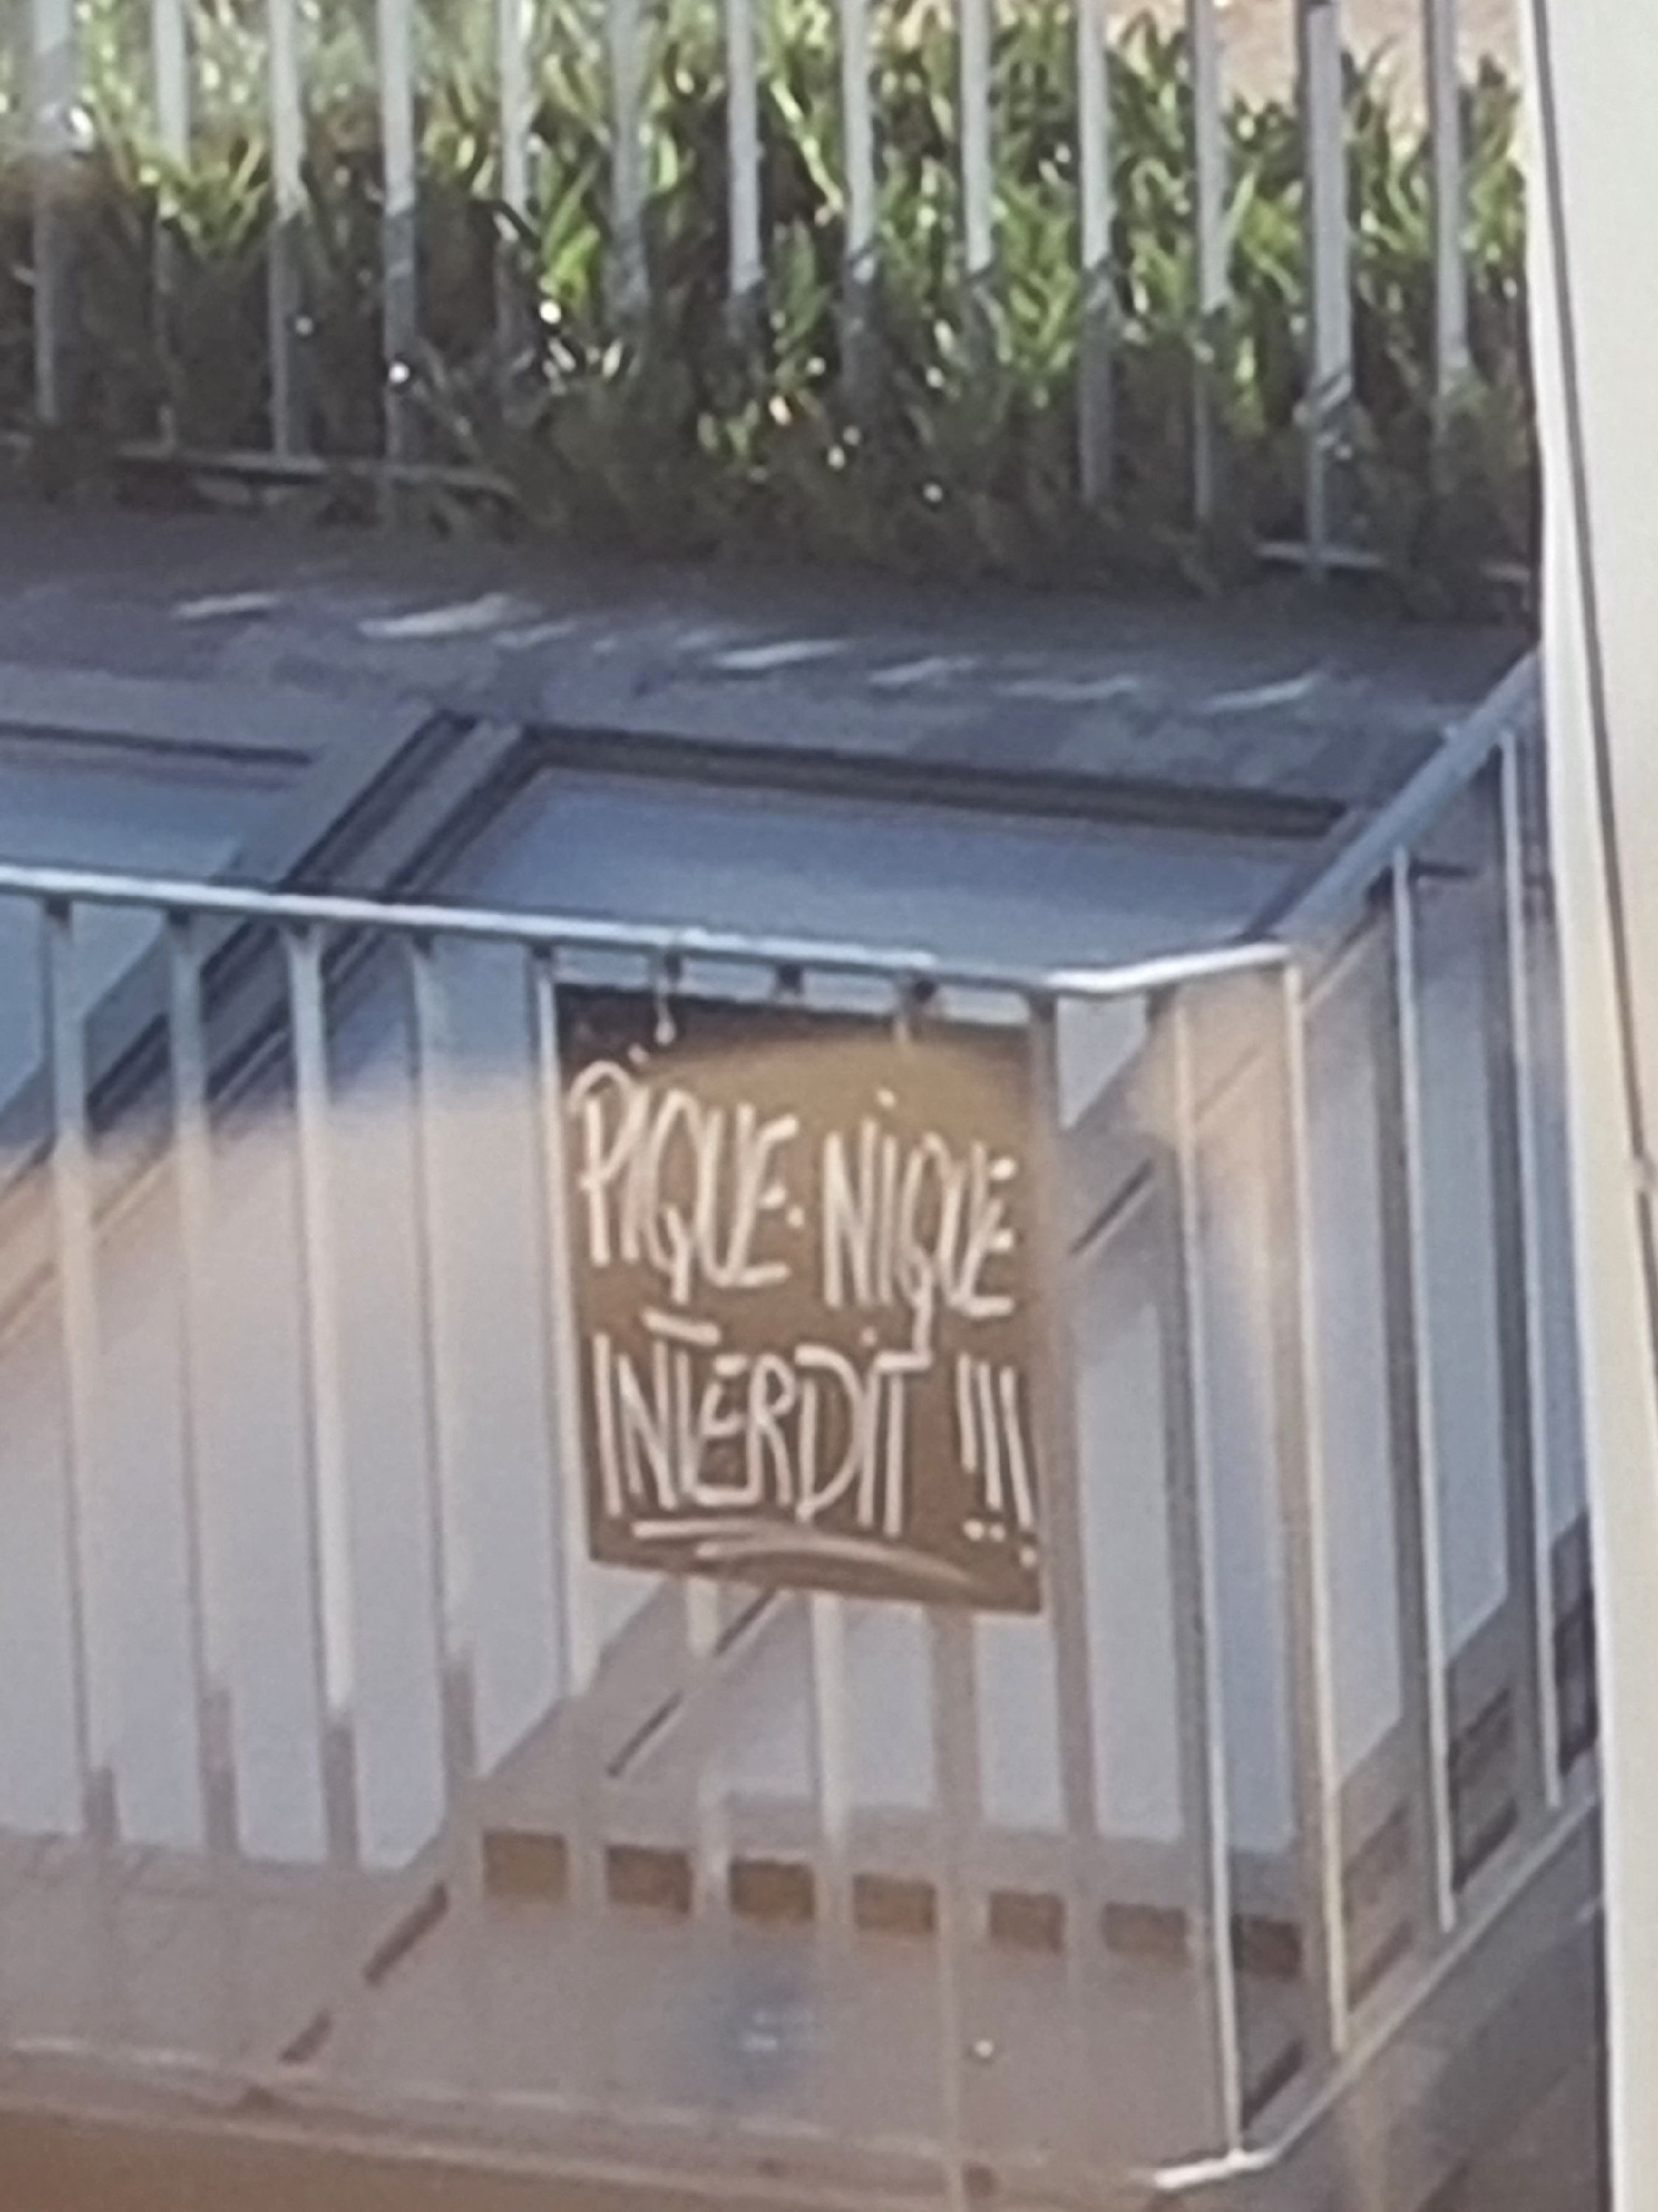 PiQUE-NiQUE
INTERDiT !!!